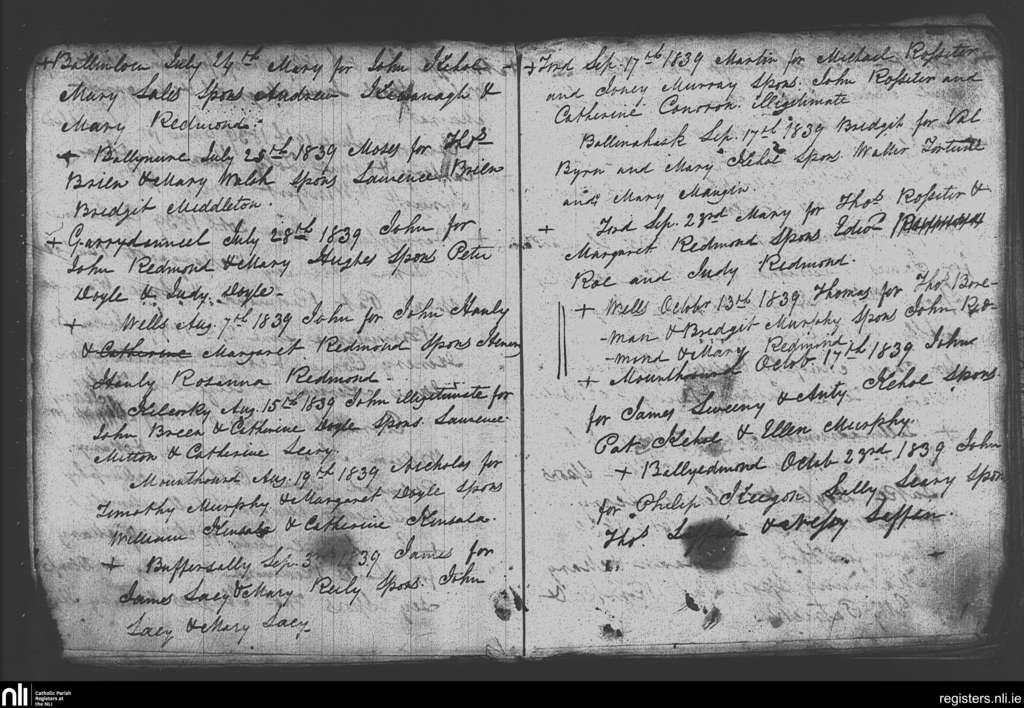 + Ballinlow July 24th Mary for John Kehoe
Mary Sales Spons Andrew Kavanagh &
Mary Redmond.
+ Ballynure July 28th 1839 Moses for Thos
Brien & Mary Walsh Spons Laurence Brien
Bridgit Middleton.
+ Garrydaniel July 28th 1839 John for
John Redmond & Mary Hughes Spons Peter
Doyle & Judy Doyle
+ Wells Aug. 7th 1839 John for John Hanly
& Catherine Margaret Redmond Spons Henery
Hanly Rosanna Redmond
Kilcorky Aug. 15th 1839 John illigitimate for
John Breen & Catherine Doyle Spons. Laurence
Mitton & Catherine Leary.
Mounthound Aug. 19th 1839 Nicholas for
Timothy Murphy & Margaret Doyle Spons
William Kinsala & Catherine Kinsala.
+ Buffersally Sep. 3rd 1839 James for
James Lacy & Mary Reily Spons. John
Lacy & Mary Lacy
+ Ford Sep. 17th 1839 Martin for Michael Rossiter
and Joney Murray Spons. John Rossiter and
Catherine Conoron. illigitimate
Ballinahask Sep. 17th 1839 Bridgit for Val
Byrn and Mary Kehoe Spons. Walter Fortune
and Mary Maugin.
+ Ford Sep. 23rd Mary for Thos Rossiter &
Margaret Redmond Spons Edwd
Roe and Judy Redmond.
+ Wells Octobr 13th 1839 Thomas for Thos Bore-
-man & Bridgit Murphy Spons John Red-
-mond & Mary Redmond
+ Mounthound Octob 17th 1839 John
for James Sweeny & Anty Kehoe Spons
Pat Kehoe & Ellen Murphy.
+ Ballyedmond Octob 23rd 1839 John
for Philip Keegon Lilly Leary Spon
Thos & Nessy Leffan.
nli Catholic Parish
Registers at
the NLI
registers.nli.ie